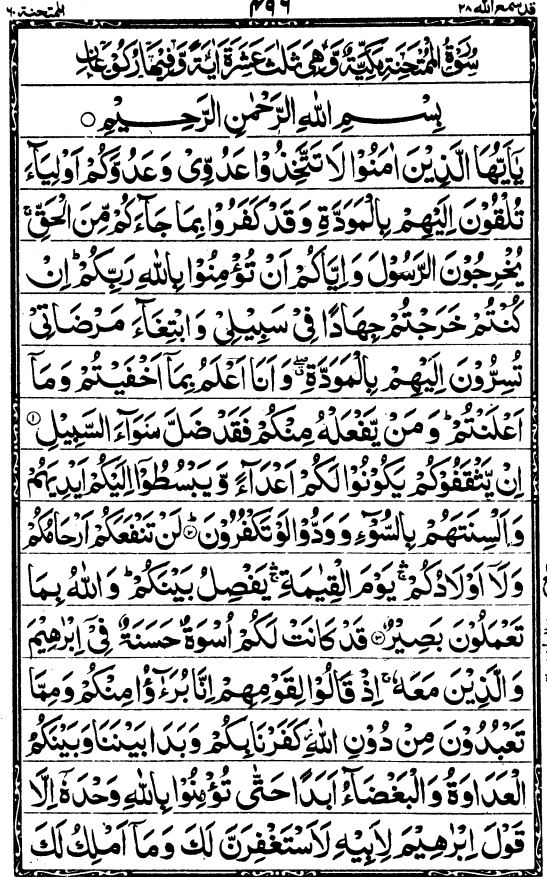 قد سمع الله ۲۸ ۴۹۶ الممتحنة ۶۰
سُوْرَةُ الْمُمْتَحِنَةِ مَدَنِيَّةٌ وَّهِيَ ثَلٰثَ عَشَرَةَ اٰيَةً وَّفِيْهَا رُكُوْعَانِ
بِسْمِ اللّٰهِ الرَّحْمٰنِ الرَّحِيْمِ ○
يٰۤاَيُّهَا الَّذِيْنَ اٰمَنُوْا لَا تَتَّخِذُوْا عَدُوِّيْ وَعَدُوَّكُمْ اَوْلِيَآءَ
تُلْقُوْنَ اِلَيْهِمْ بِالْمَوَدَّةِ وَقَدْ كَفَرُوْا بِمَا جَآءَكُمْ مِّنَ الْحَقِّ ۚ
يُخْرِجُوْنَ الرَّسُوْلَ وَاِيَّاكُمْ اَنْ تُؤْمِنُوْا بِاللّٰهِ رَبِّكُمْ ؕ اِنْ
كُنْتُمْ خَرَجْتُمْ جِهَادًا فِيْ سَبِيْلِيْ وَابْتِغَآءَ مَرْضَاتِيْ
تُسِرُّوْنَ اِلَيْهِمْ بِالْمَوَدَّةِ ۖ وَاَنَا اَعْلَمُ بِمَاۤ اَخْفَيْتُمْ وَمَاۤ
اَعْلَنْتُمْ ؕ وَمَنْ يَّفْعَلْهُ مِنْكُمْ فَقَدْ ضَلَّ سَوَآءَ السَّبِيْلِ ۝۱
اِنْ يَّثْقَفُوْكُمْ يَكُوْنُوْا لَكُمْ اَعْدَآءً وَّيَبْسُطُوْۤا اِلَيْكُمْ اَيْدِيَهُمْ
وَاَلْسِنَتَهُمْ بِالسُّوْٓءِ وَوَدُّوْا لَوْ تَكْفُرُوْنَ ۝۲ لَنْ تَنْفَعَكُمْ اَرْحَامُكُمْ
وَلَاۤ اَوْلَادُكُمْ ۛ يَوْمَ الْقِيٰمَةِ ۛ يَفْصِلُ بَيْنَكُمْ ؕ وَاللّٰهُ بِمَا
تَعْمَلُوْنَ بَصِيْرٌ ۝۳ قَدْ كَانَتْ لَكُمْ اُسْوَةٌ حَسَنَةٌ فِيْۤ اِبْرٰهِيْمَ
وَالَّذِيْنَ مَعَهٗ ۚ اِذْ قَالُوْا لِقَوْمِهِمْ اِنَّا بُرَءٰٓؤُا مِنْكُمْ وَمِمَّا
تَعْبُدُوْنَ مِنْ دُوْنِ اللّٰهِ ؗ كَفَرْنَا بِكُمْ وَبَدَا بَيْنَنَا وَبَيْنَكُمُ
الْعَدَاوَةُ وَالْبَغْضَآءُ اَبَدًا حَتّٰى تُؤْمِنُوْا بِاللّٰهِ وَحْدَهٗۤ اِلَّا
قَوْلَ اِبْرٰهِيْمَ لِاَبِيْهِ لَاَسْتَغْفِرَنَّ لَكَ وَمَاۤ اَمْلِكُ لَكَ